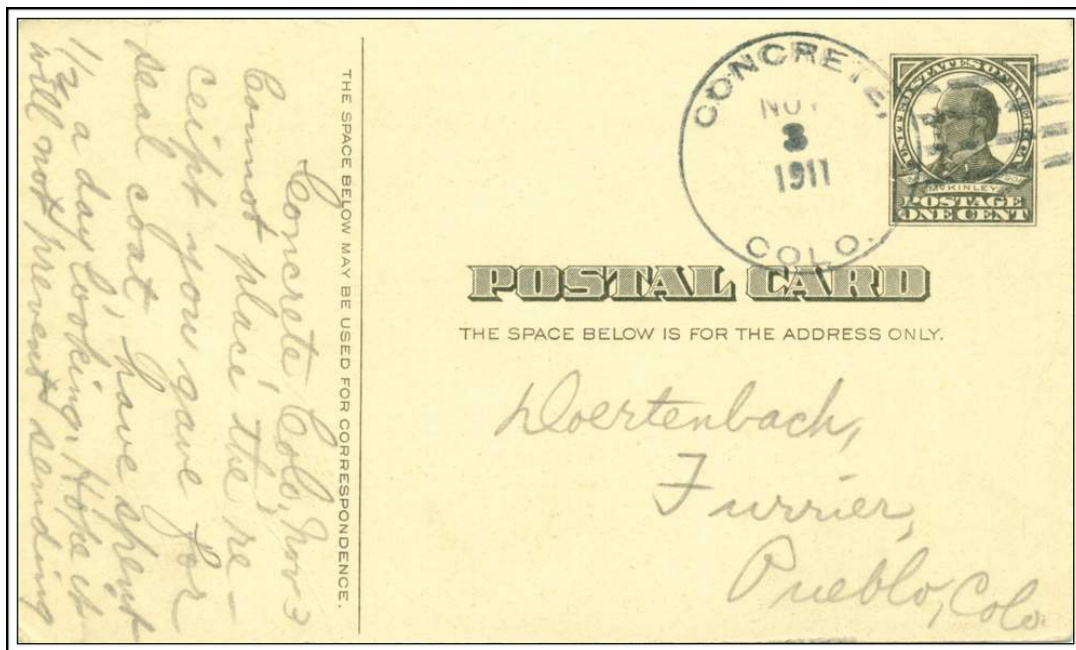 CONCRETE,
NOV
3
1911
COLO.
UNITED STATES OF AMERICA
McKINLEY
POSTAGE
ONE CENT
POSTAL CARD
THE SPACE BELOW IS FOR THE ADDRESS ONLY.
Doertenbach,
Furrier,
Pueblo, Colo.
THE SPACE BELOW MAY BE USED FOR CORRESPONDENCE.
Concrete Colo, Nov 3
Cannot place the re-
ceipt you gave for
seal coat, have spent
1/2 a day looking. Hope it
will not prevent sending